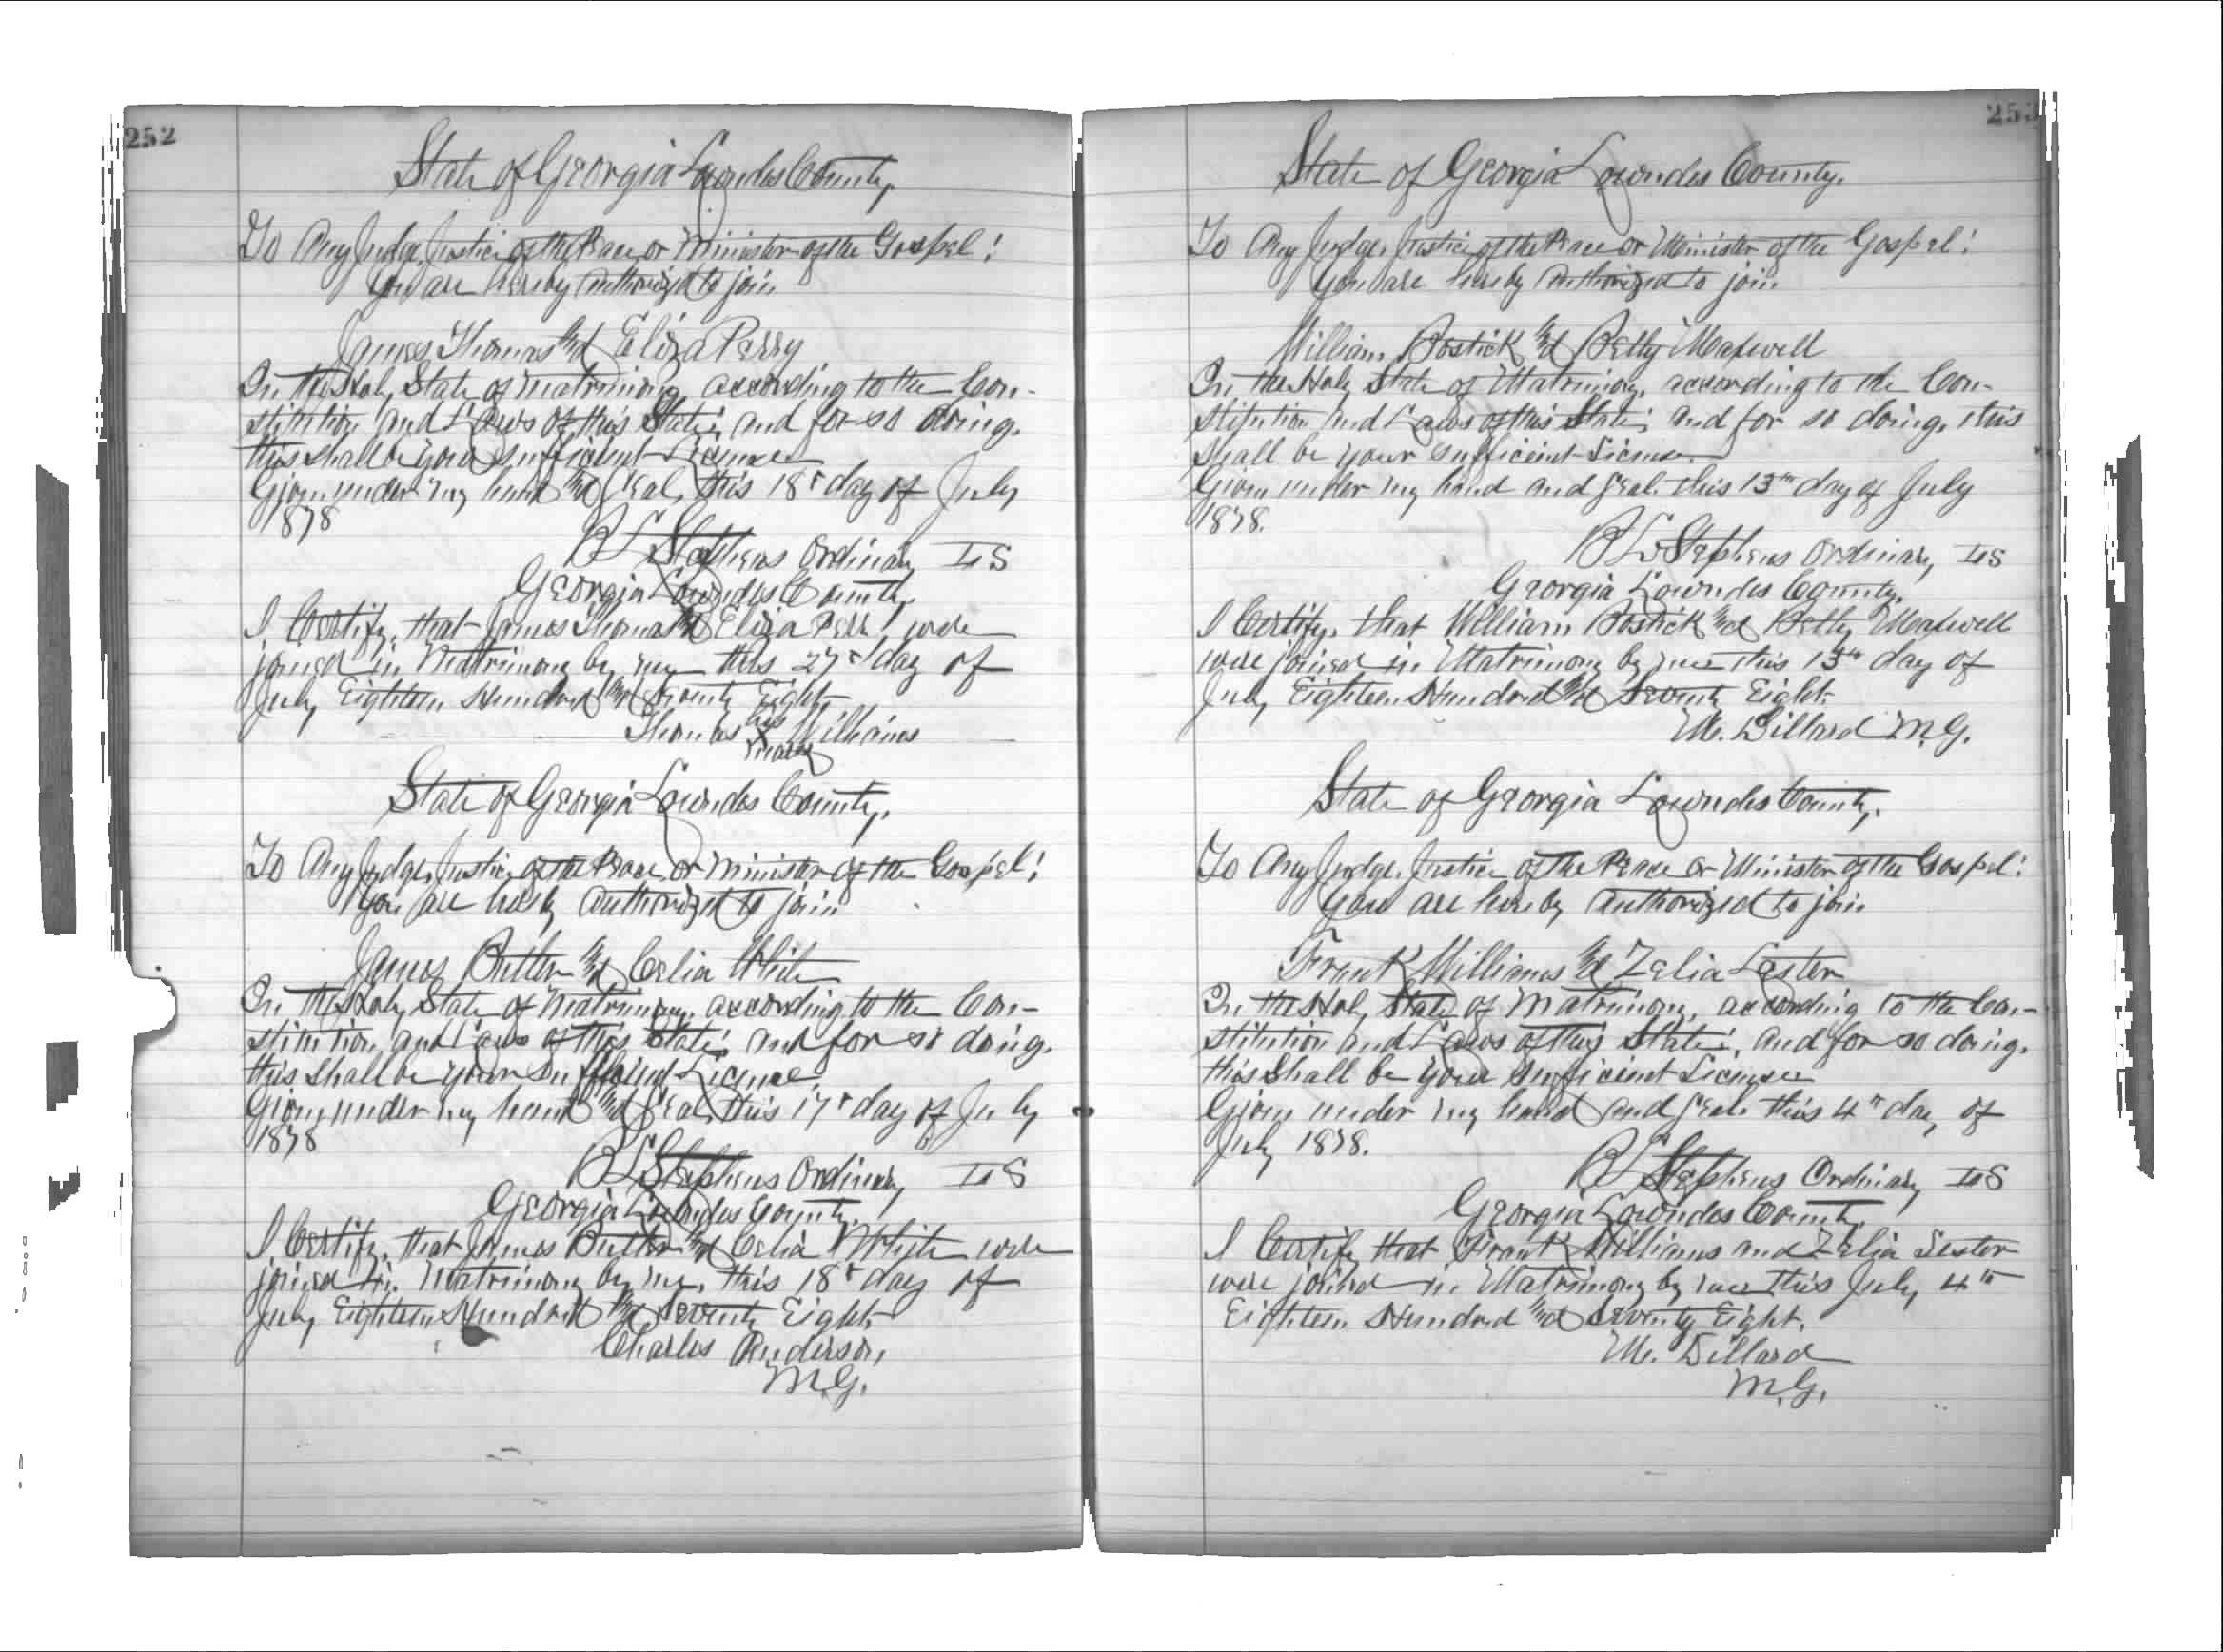 252
State of Georgia Lowndes County.
To Any Judge, Justice of the Peace or Minister of the Gospel:
You are hereby authorized to join
James Thomas and Eliza Perry
In the Holy State of Matrimony, according to the Con-
stitution and Laws of this State; and for so doing,
this shall be your sufficient License
Given under my hand and Seal, this 18" day of July
1878
Stephens Ordinary LS
Georgia Lowndes County,
I Certify, that James Thomas and Eliza Perr were
joined in Matrimony by me this 27" day of
July Eighteen Hundred and Seventy Eight
Thomas his X mark Williams
State of Georgia Lowndes County,
To Any Judge, Justice of the Peace, or Minister of the Gospel:
You are hereby authorized to join
James Butler and Celia White
In the Holy State of Matrimony, according to the Con-
stitution and Laws of this State; and for so doing,
this shall be your sufficient License
Given under my hand and Seal, this 17" day of July
1878
Stephens Ordinary LS
Georgia Lowndes County,
I Certify, that James Butler and Celia White were
joined in Matrimony by me, this 18" day of
July Eighteen Hundred and Seventy Eight
Charles Anderson,
M.G.
253
State of Georgia Lowndes County.
To Any Judge, Justice of the Peace or Minister of the Gospel:
You are hereby authorized to join
William Bostick and Betty Maxwell
In the Holy State of Matrimony, according to the Con-
stitution and Laws of this State; and for so doing, this
shall be your sufficient License.
Given under my hand and Seal this 13th day of July
1878.
Stephens Ordinary, LS
Georgia Lowndes County.
I Certify, that William Bostick and Betty Maxwell
were joined in Matrimony by me this 13th day of
July Eighteen Hundred and Seventy Eight.
Dillard M.G.
State of Georgia Lowndes County.
To Any Judge, Justice of the Peace or Minister of the Gospel:
You are hereby authorized to join
Frank Williams and Zelia Lester
In the Holy State of Matrimony, according to the Con-
stitution and Laws of this State; and for so doing,
this shall be your sufficient License
Given under my hand and Seal this 4th day of
July 1878.
Stephens Ordinary LS
Georgia Lowndes County,
I Certify that Frank Williams and Zelia Lester
were joined in Matrimony by me this July 4th
Eighteen Hundred and Seventy Eight.
Dillard
M.G.